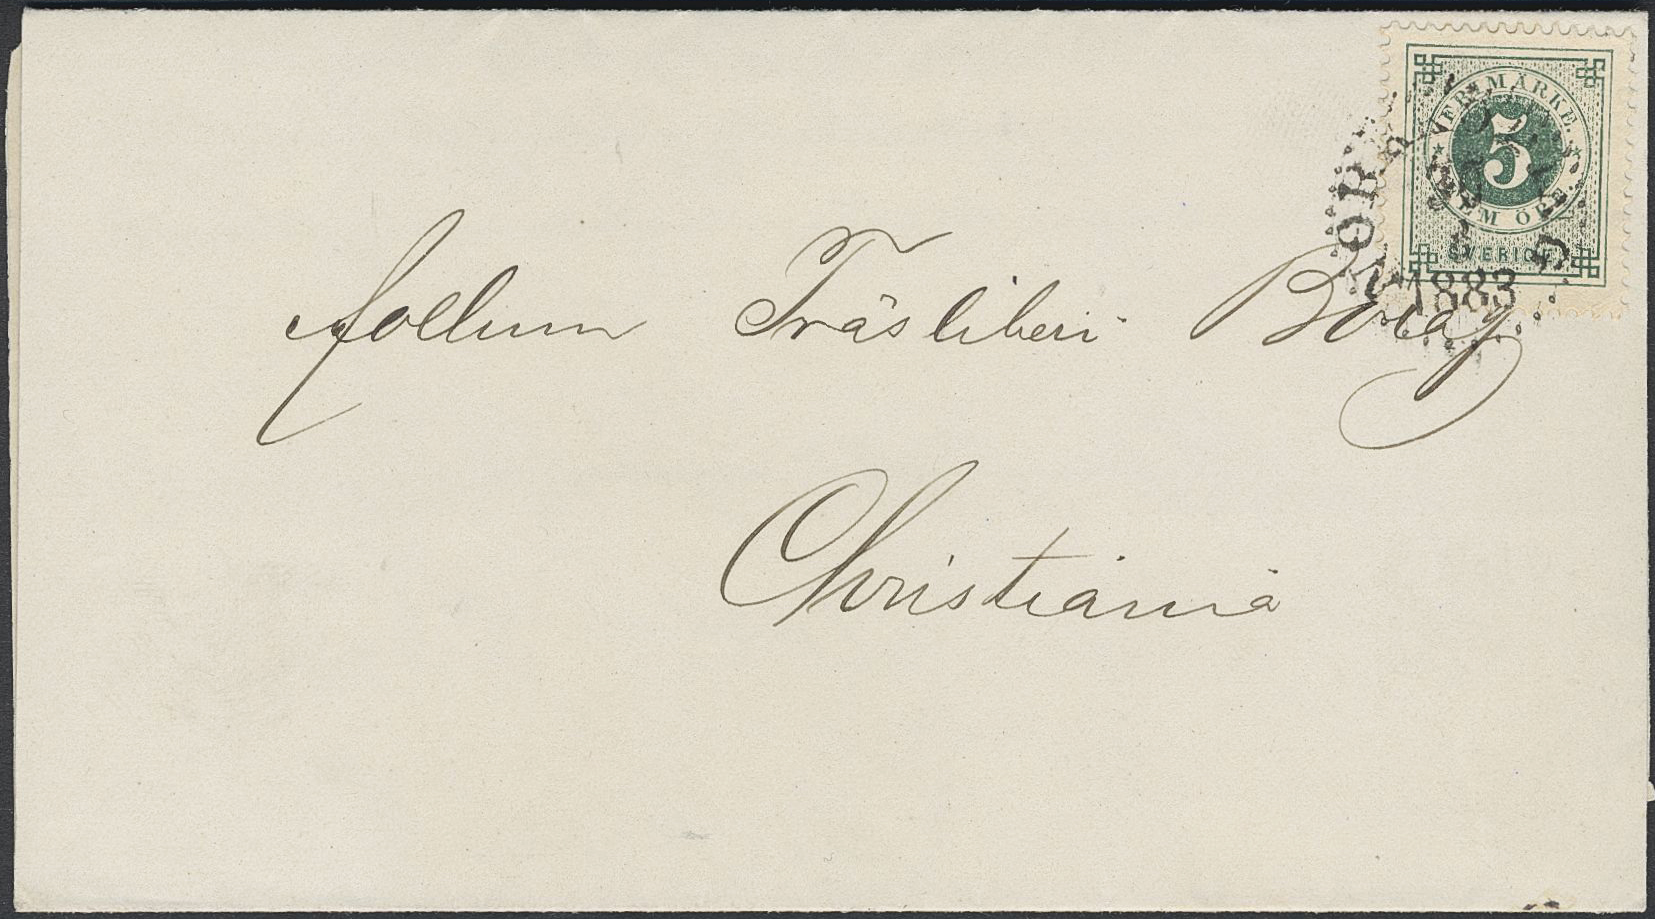 FRIMÄRKE.
5
FEM ÖRE.
SVERIGE
1883
Follum Träsliberi Bolag
Christiania